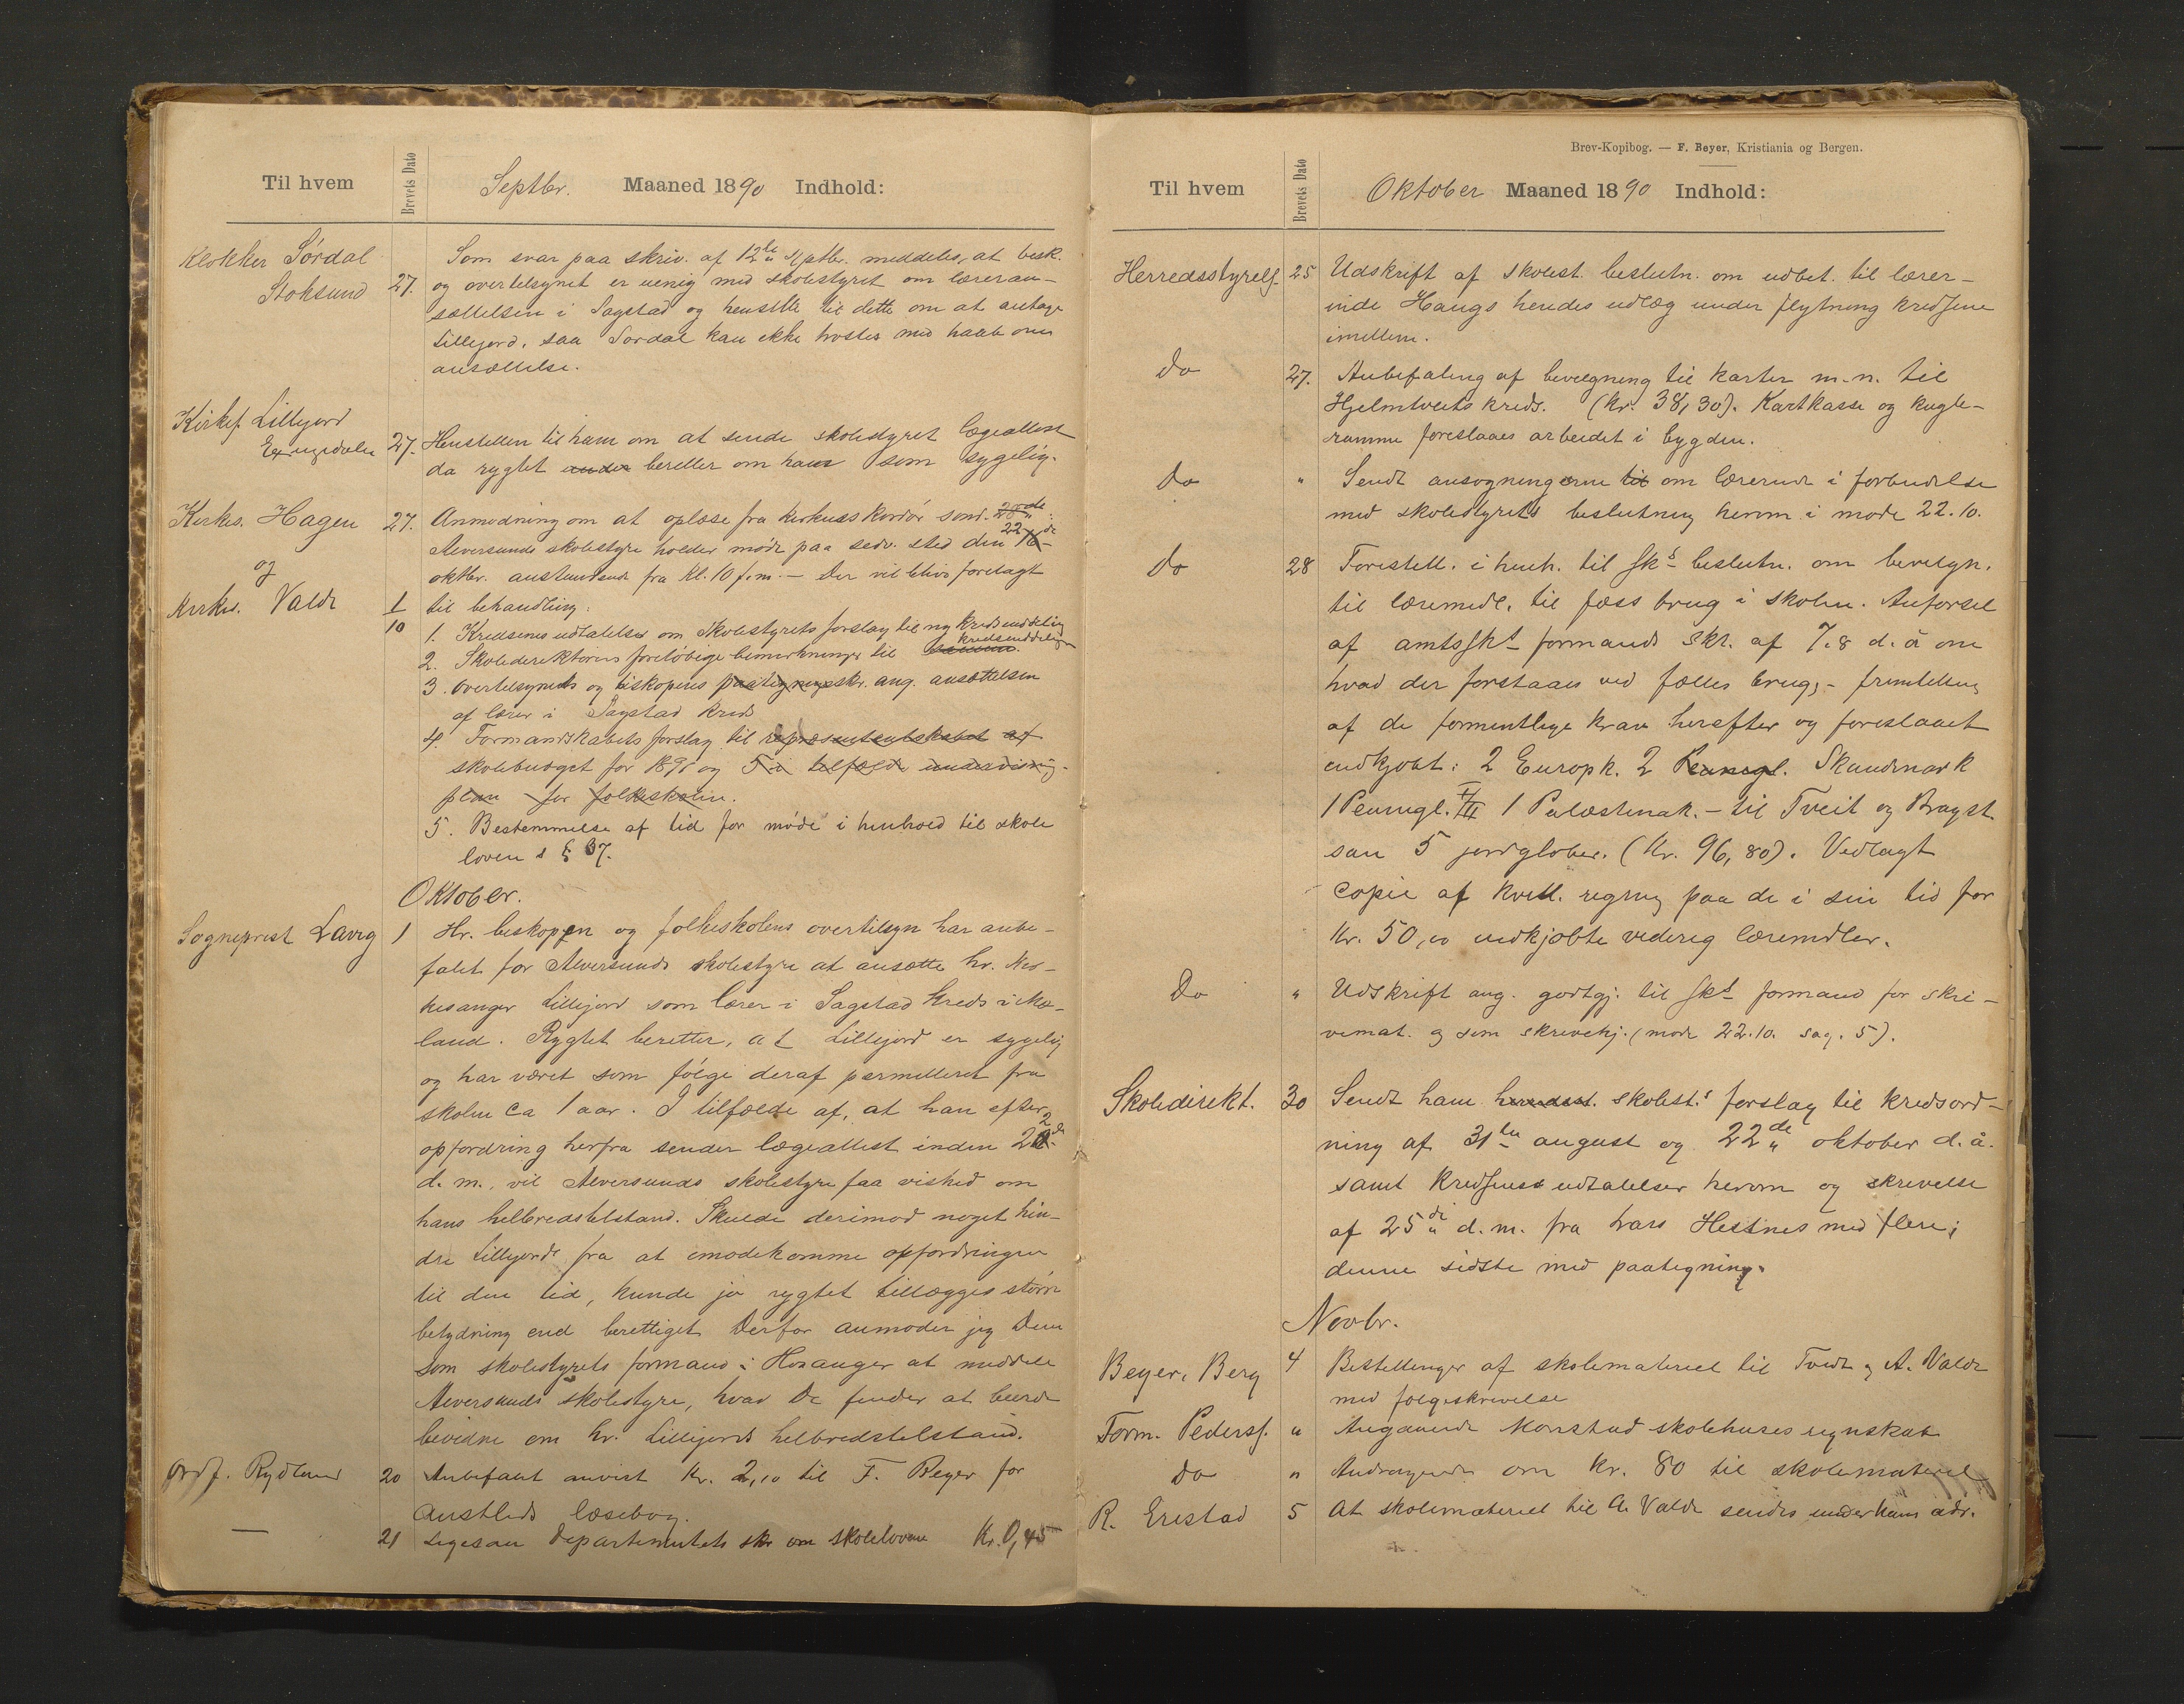 Til hvem
Brevets Dato
Septbr. Maaned 1890 Indhold:
Klokker Sørdal
Stoksund
27.
Som svar paa skriv. af 12te Septbr. meddeles, at bisk.
og overtilsynet er uenig med skolestyret om læreran-
sættelsen i Sagstad og henstille til dette om at antage
Lillejord, saa Sørdal kan ikke trøstes med haab om
ansættelse.
Kirkes. Lillejord
Exingedalen
27.
Henstillen til ham om at sende skolestyret lægeattest
da rygtet under beretter om ham som sygelig.
Kirkes. Hagen
og
Kirkes. Valde
27.
1
10
Anmodning om at oplæse fra kirkens kordør sønd. 28de:
Alversunds skolestyre holder møde paa sedv. sted den 16 22de
oktbr. anstundende fra Kl. 10 f.m. — Der vil blive forelagt
til behandling:
1. Kredsenes udtalelser om skolestyrets forslag til ny kredsinddeling
2. Skoledirektørens foreløbige bemerkninger til samme. kredsinddelingen
3. Overtilsynets og biskopens paategningsskr. ang. ansættelsen
af lærer i Sagstad kreds
4. Formandskabets forslag til repræsentantskabet af
skolebudget for 1891 og 5 i tilfælde undervisnings-
plan for folkeskolen.
5. Bestemmelse af tid for møde i henhold til skole
lovens § 37.
Oktober.
Sogneprest Lavig
1
Hr. biskoppen og folkeskolens overtilsyn har anbe-
falet for Alversunds skolestyre at ansætte hr. Mes-
kesanger Lillejord som lærer i Sagstad kreds i Mæ-
land. Rygtet beretter, at Lillejord er sygelig
og har været som følge deraf permitteret fra
skolen ca 1 aar. I tilfælde af, at han efter
opfordring herfra sender lægeattest inden 22de
d. m., vil Alversunds skolestyre faa vished om
hans helbredstilstand. Skulde derimod noget hin-
dre Lillejord fra at imødekomme opfordringen
til den tid, kunde jo rygtet tillægges større
betydning end berettiget. Derfor anmoder jeg Dem
som skolestyrets formand i Hosanger at meddele
Alversunds skolestyre, hvad De finder at burde
bevidne om hr. Lillejords helbredstilstand.
Ordf. Rydland
20
Anbefalet anvist Kr. 2,10 til F. Beyer for
Austlids læsebog.
—
21
Ligesaa departementets skr om skolelovene Kr. 0,45
Brev-Kopibog. — F. Beyer, Kristiania og Bergen.
Til hvem
Brevets Dato
Oktober Maaned 1890 Indhold:
Herredsstyrels.
25
Udskrift af skolest. beslutn. om udbet. til lærer-
inde Haugs hendes udlæg under flytning kredsene
imellem.
Do
27.
Anbefaling af bevilgning til karter m.m. til
Hjelmtveits kreds. (Kr. 38,30). Kartkasse og kugle-
ramme foreslaaes arbeidet i bygden.
Do
"
Sendt ansøgningerne til om lærerinde i forbindelse
med skolestyrets beslutning herom i møde 22.10.
Do
28
Forestill. i henh. til sks beslutn. om bevilgn.
til læremidl. til fæss brug i skolen. Anførsel
af amtssks formands skr. af 7.8 d.å om
hvad der forstaaes ved fælles brug, - fremstilling
af de formentlige krav herefter og foreslaaet
indkjøbt: 2 Europk. 2 Skandinavk
1 Pennigl. I/III 1 Palæstinak. — til Tveit og Bragst.
saa 5 jordglober. (Kr. 96,80). Vedlagt
copie af kvitt. regning paa de i sin tid for
Kr. 50,00 indkjøbte læremidler.
Do
"
Udskrift ang. godtgj. til sks formand for skri-
vemat. og som skrivehj. (møde 22.10. sag. 5).
Skoledirekt.
30
Sendt ham skolest.s forslag til kredsord-
ning af 31te august og 22de oktober d. å.
samt kredsenes udtalelser herom og skrivelse
af 25de d. m. fra Lars Hestnes med flere;
denne sidste med paategning.
Novbr.
Beyer, Berg
4
Bestillinger af skolemateriel til Tveit og A. Valde
med følgeskrivelse
Form. Peders.
"
Angaaende Monstad skolehuses regnskab
Do
"
Andragende om kr. 80 til skolemateriel
R. Erstad
5
At skolemateriel til A. Valde sendes under hans adr.